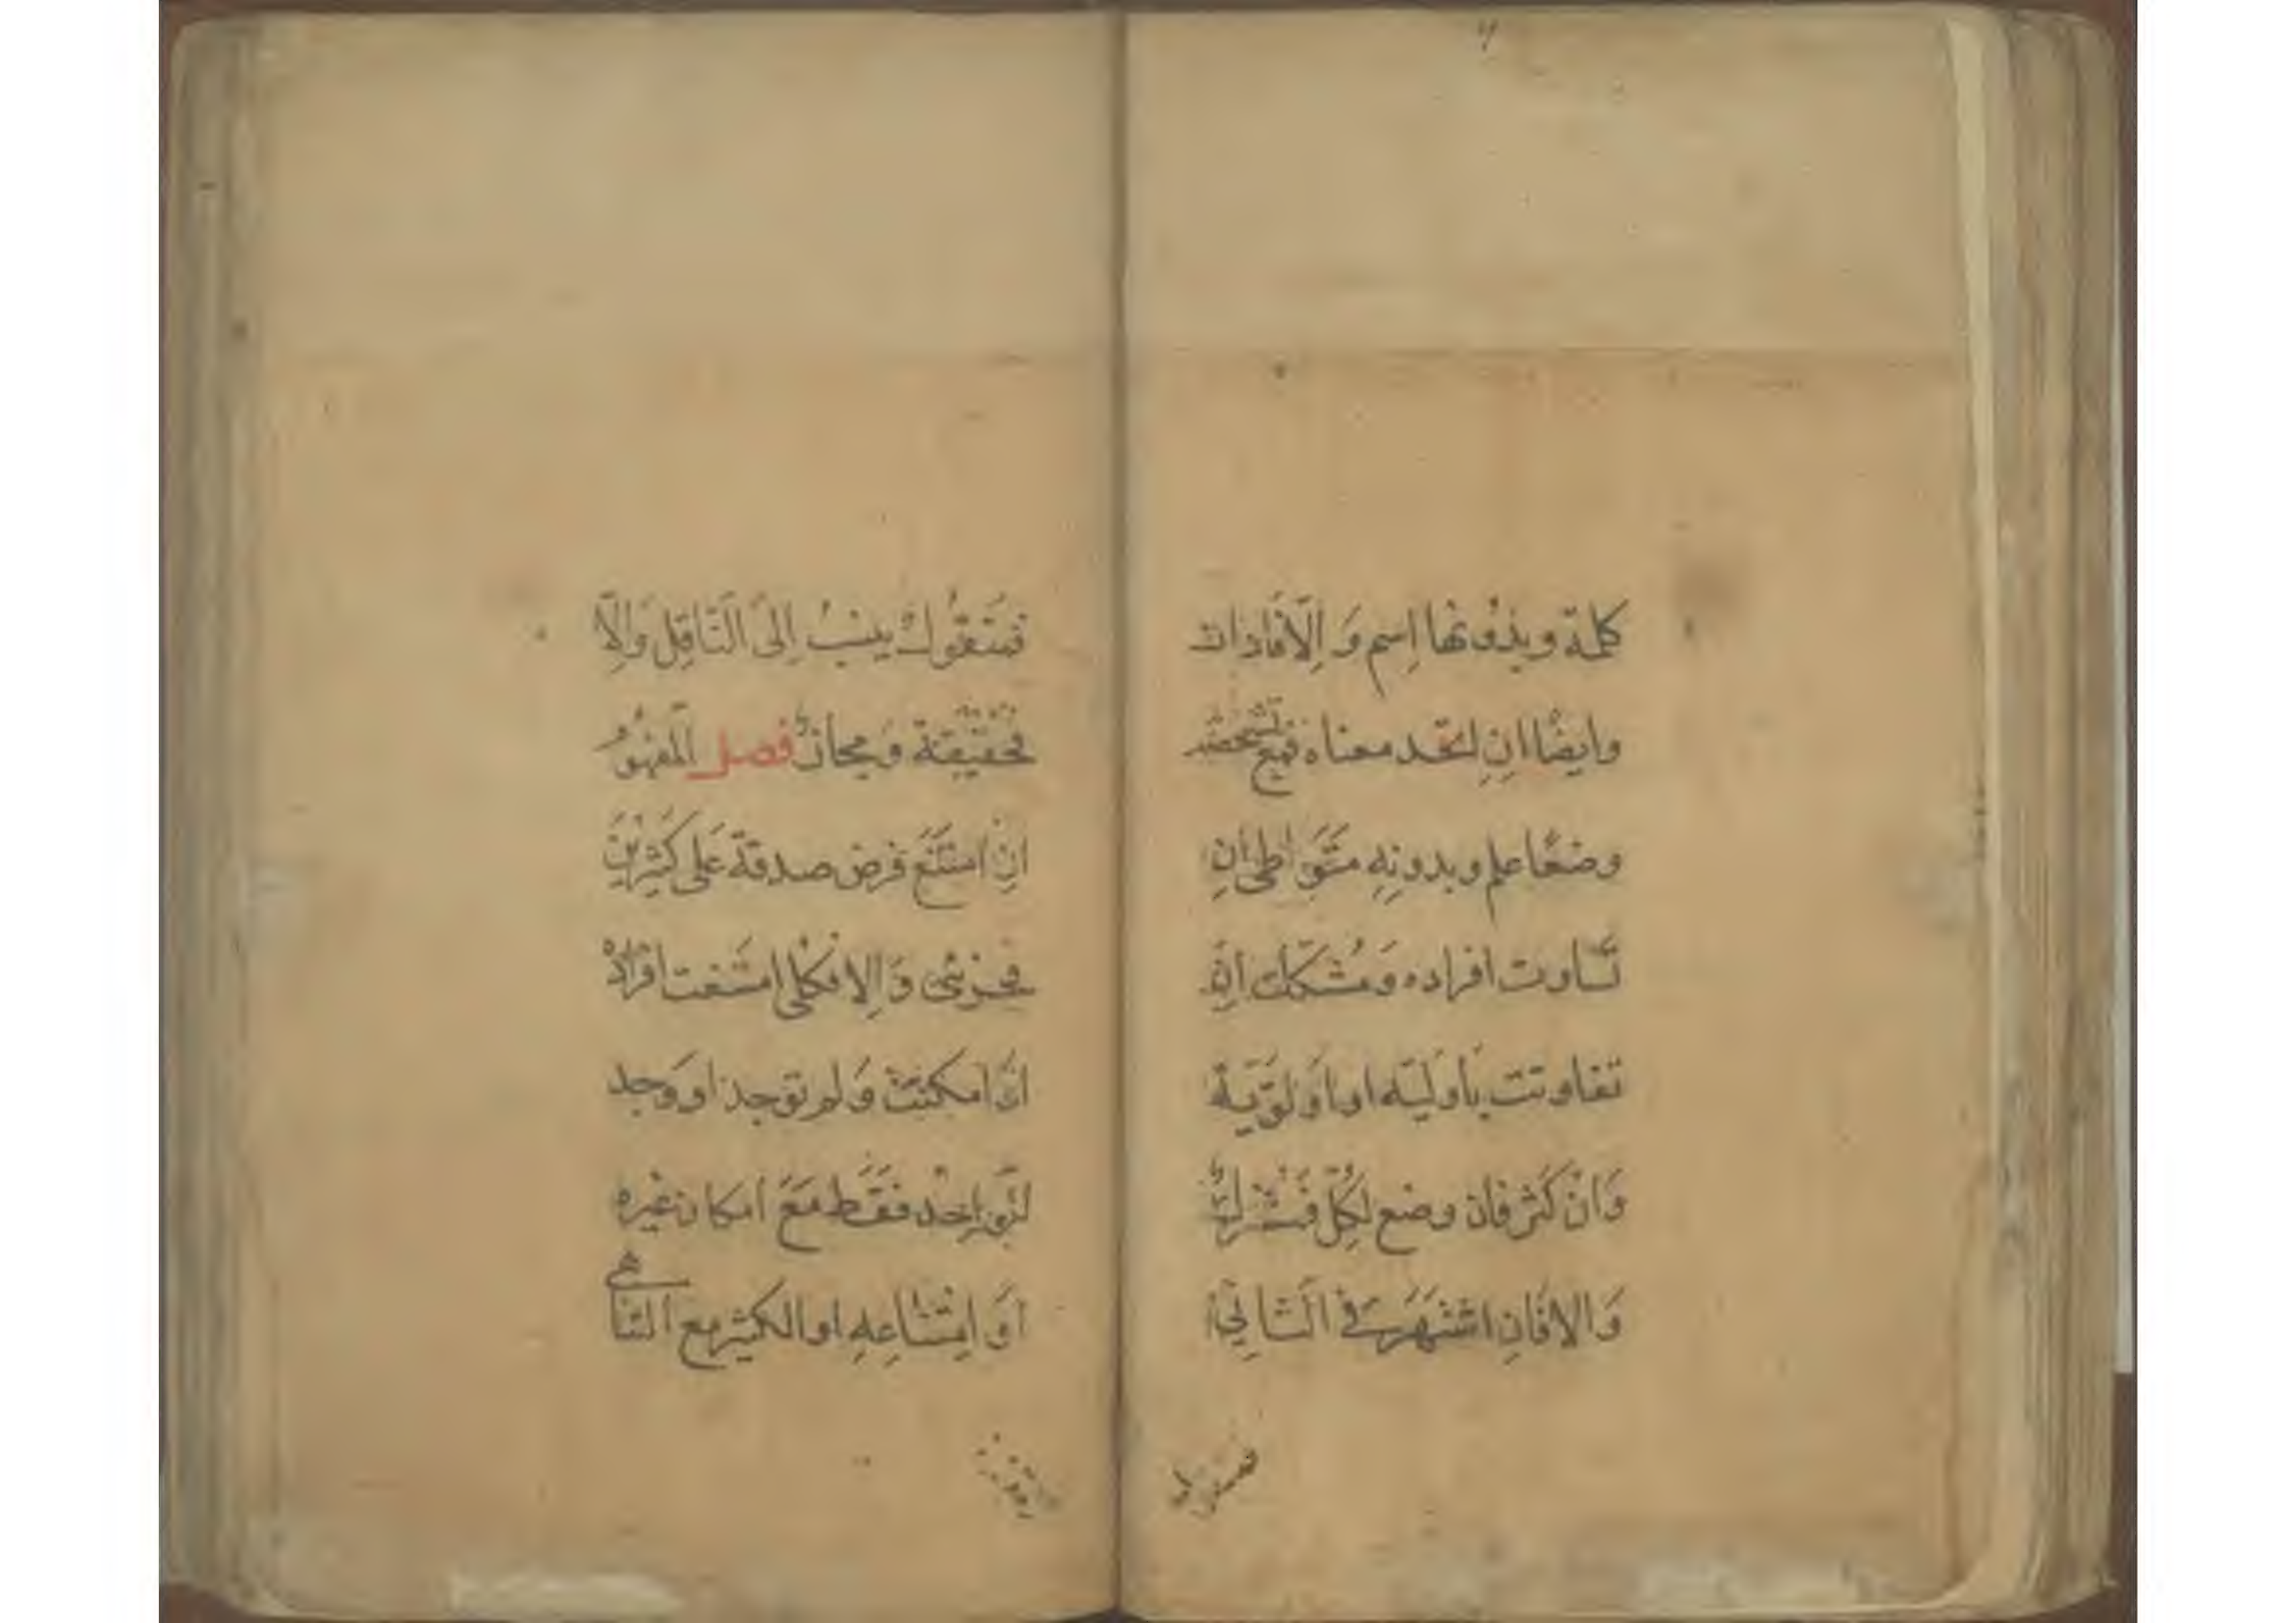 كلمة وبدونها اسم وَالا فاداة
وايضًا ان اتحد معناه فمع تشخصه
وضعًا علم وبدونه متواطئ ان
تساوت افراده وَمُشكك ان
تفاوتت بأوليه او اَولَوية
وَان كَثر فان وضع لكلّ فمشترك
وَالا فان اشتهر في الثاني
فمنقول
فَمنقُول ينسبُ اِلىَ النّاقِل وَاِلا
فحقيقة وَمجاز فصل المفهوُ
ان امتنَعَ فرض صدقة عَلى كَثِيْريْن
فجزئى وَاِلا فكلى امتنعت افراده
او امكنت وَلم توجد او وَجد
واحد فقط مَعَ امكان غيره
اَو اِمتناعِهِ او الكثير مع التناهى